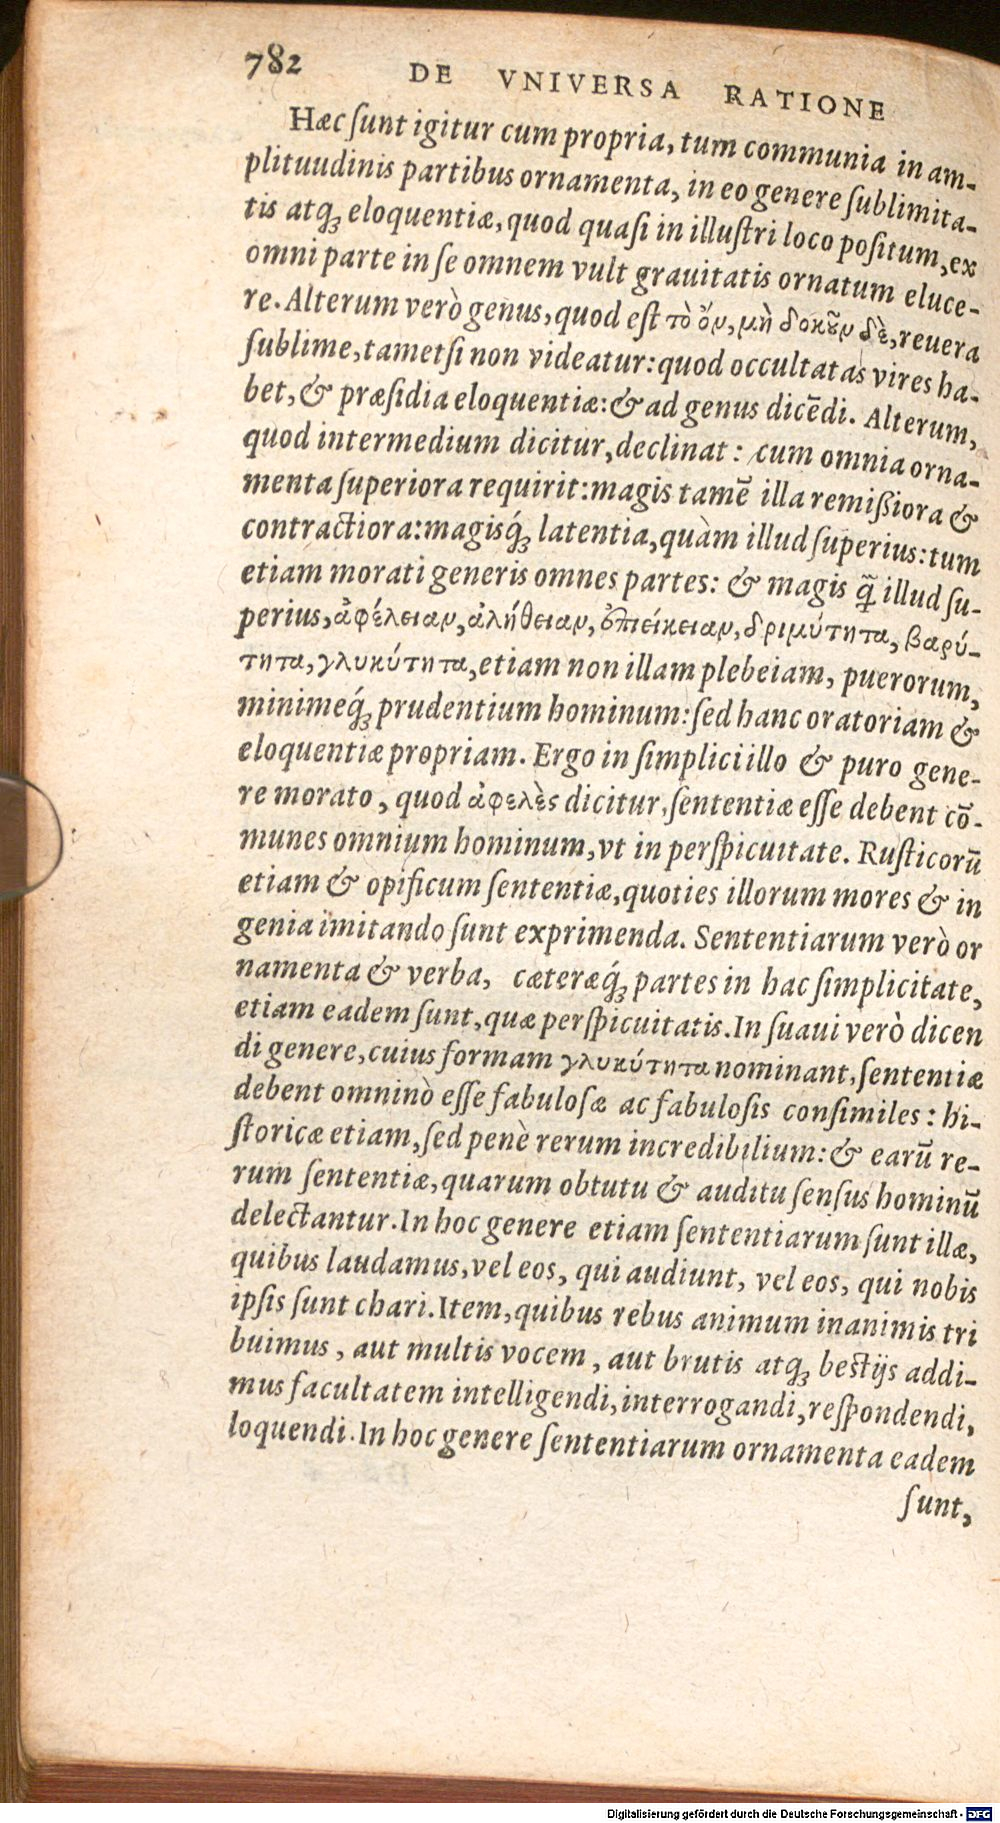 782 DE VNIVERSA RATIONE
Hæc ſunt igitur cum propria, tum communia in am-
plituudinis partibus ornamenta, in eo genere ſublimita-
tis atq́ꝫ eloquentiæ, quod quaſi in illuſtri loco poſitum, ex
omni parte in ſe omnem vult grauitatis ornatum eluce-
re. Alterum verò genus, quod eſt τὸ ὄν, μὴ δοκοῦν δὲ, reuera
ſublime, tametſi non videatur: quod occultat as vires ha-
bet, & præſidia eloquentiæ: & ad genus dicēdi. Alterum,
quod intermedium dicitur, declinat: cum omnia orna-
menta ſuperiora requirit: magis tamē illa remißiora &
contractiora: magisq́ꝫ latentia, quàm illud ſuperius: tum
etiam morati generis omnes partes: & magis q̃ illud ſu-
perius, ἀφέλειαν, ἀλήθειαν, ἐπιείκειαν, δριμύτητα, βαρύ-
τητα, γλυκύτητα, etiam non illam plebeiam, puerorum,
minimeq́ꝫ prudentium hominum: ſed hanc oratoriam &
eloquentiæ propriam. Ergo in ſimplici illo & puro gene-
re morato, quod ἀφελὲς dicitur, ſententiæ eſſe debent cō-
munes omnium hominum, vt in perſpicuitate. Ruſticorū
etiam & opificum ſententiæ, quoties illorum mores & in
genia imitando ſunt exprimenda. Sententiarum verò or
namenta & verba, cæteræq́ꝫ partes in hac ſimplicitate,
etiam eadem ſunt, quæ perſpicuitatis. In ſuaui verò dicen
di genere, cuius formam γλυκύτητα nominant, ſententiæ
debent omninò eſſe fabuloſæ ac fabuloſis conſimiles: hi-
ſtoricæ etiam, ſed penè rerum incredibilium: & earū re-
rum ſententiæ, quarum obtutu & auditu ſenſus hominū
delectantur. In hoc genere etiam ſententiarum ſunt illæ,
quibus laudamus, vel eos, qui audiunt, vel eos, qui nobis
ipſis ſunt chari. Item, quibus rebus animum inanimis tri
buimus, aut multis vocem, aut brutis atq́ꝫ beſtijs addi-
mus facultatem intelligendi, interrogandi, reſpondendi,
loquendi. In hoc genere ſententiarum ornamenta eadem
ſunt,
Digitalisierung gefördert durch die Deutsche Forschungsgemeinschaft - DFG